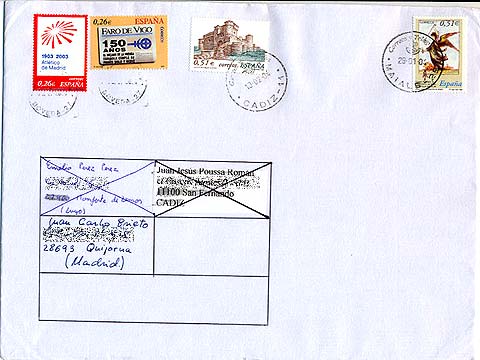 0,26€
1903 2003
Atlético
de Madrid
0,26€ ESPAÑA
ESPAÑA
FARO DE VIGO
150 AÑOS
CORREOS
0,51€ correos ESPAÑA
CADIZ-11
13-02-04
Correos y
29-01-04
0,51€
CORREOS
España
Emilio Perez Perez
Monforte de Lemos
(Lugo)
Juan Jesus Poussa Roman
11100 San Fernando
CADIZ
Juan Carlos Prieto
28693 Quijorna
(Madrid)